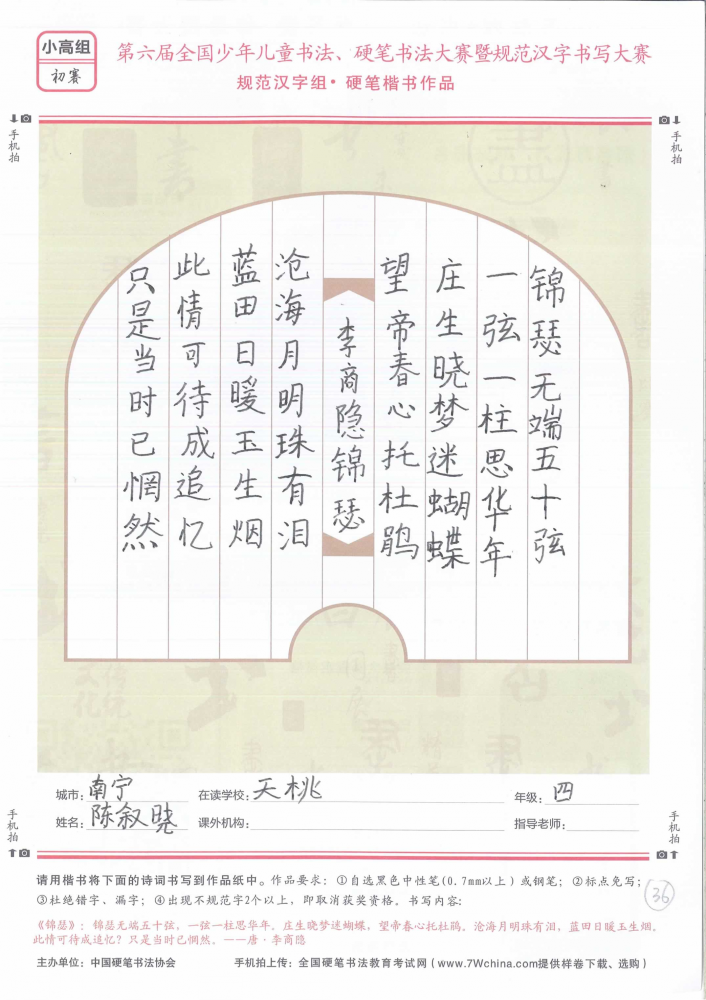 小高组
初赛
第六届全国少年儿童书法、硬笔书法大赛暨规范汉字书写大赛
规范汉字组·硬笔楷书作品
手机拍
手机拍
锦瑟无端五十弦
一弦一柱思华年
庄生晓梦迷蝴蝶
望帝春心托杜鹃
李商隐锦瑟
沧海月明珠有泪
蓝田日暖玉生烟
此情可待成追忆
只是当时已惘然
城市:南宁 在读学校:天桃 年级:四
姓名:陈叙晓 课外机构: 指导老师:
手机拍
手机拍
请用楷书将下面的诗词书写到作品纸中。作品要求:①自选黑色中性笔(0.7mm以上)或钢笔;②标点免写;
③杜绝错字、漏字;④出现不规范字2个以上,即取消获奖资格。书写内容:
36
《锦瑟》:锦瑟无端五十弦,一弦一柱思华年。庄生晓梦迷蝴蝶,望帝春心托杜鹃。沧海月明珠有泪,蓝田日暖玉生烟。
此情可待成追忆?只是当时已惘然。——唐·李商隐
主办单位:中国硬笔书法协会 手机拍上传:全国硬笔书法教育考试网(www.7Wchina.com提供样卷下载、选购)